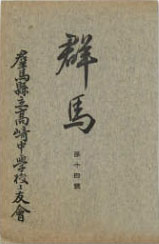 群馬
第十四號
群馬縣立高崎中學校々友會